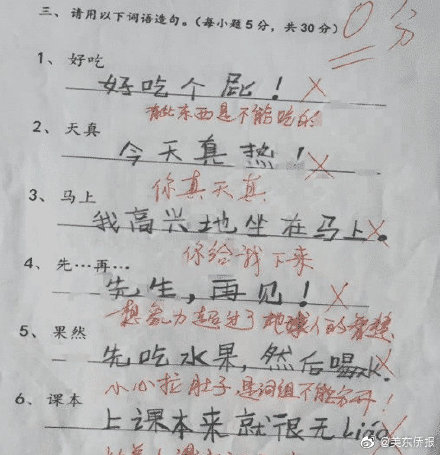 三、请用以下词语造句。(每小题5分，共30分)
0分
1、好吃
好吃个屁！
有些东西是不能吃的
2、天真
今天真热！
你真天真
3、马上
我高兴地坐在马上。
你给我下来
4、先…再…
先生，再见！
想象力超过了地球人的智慧
5、果然
先吃水果，然后喝水.
小心拉肚子 是词组不能分开！
6、课本
上课本来就很无Liáo
@美东侨报